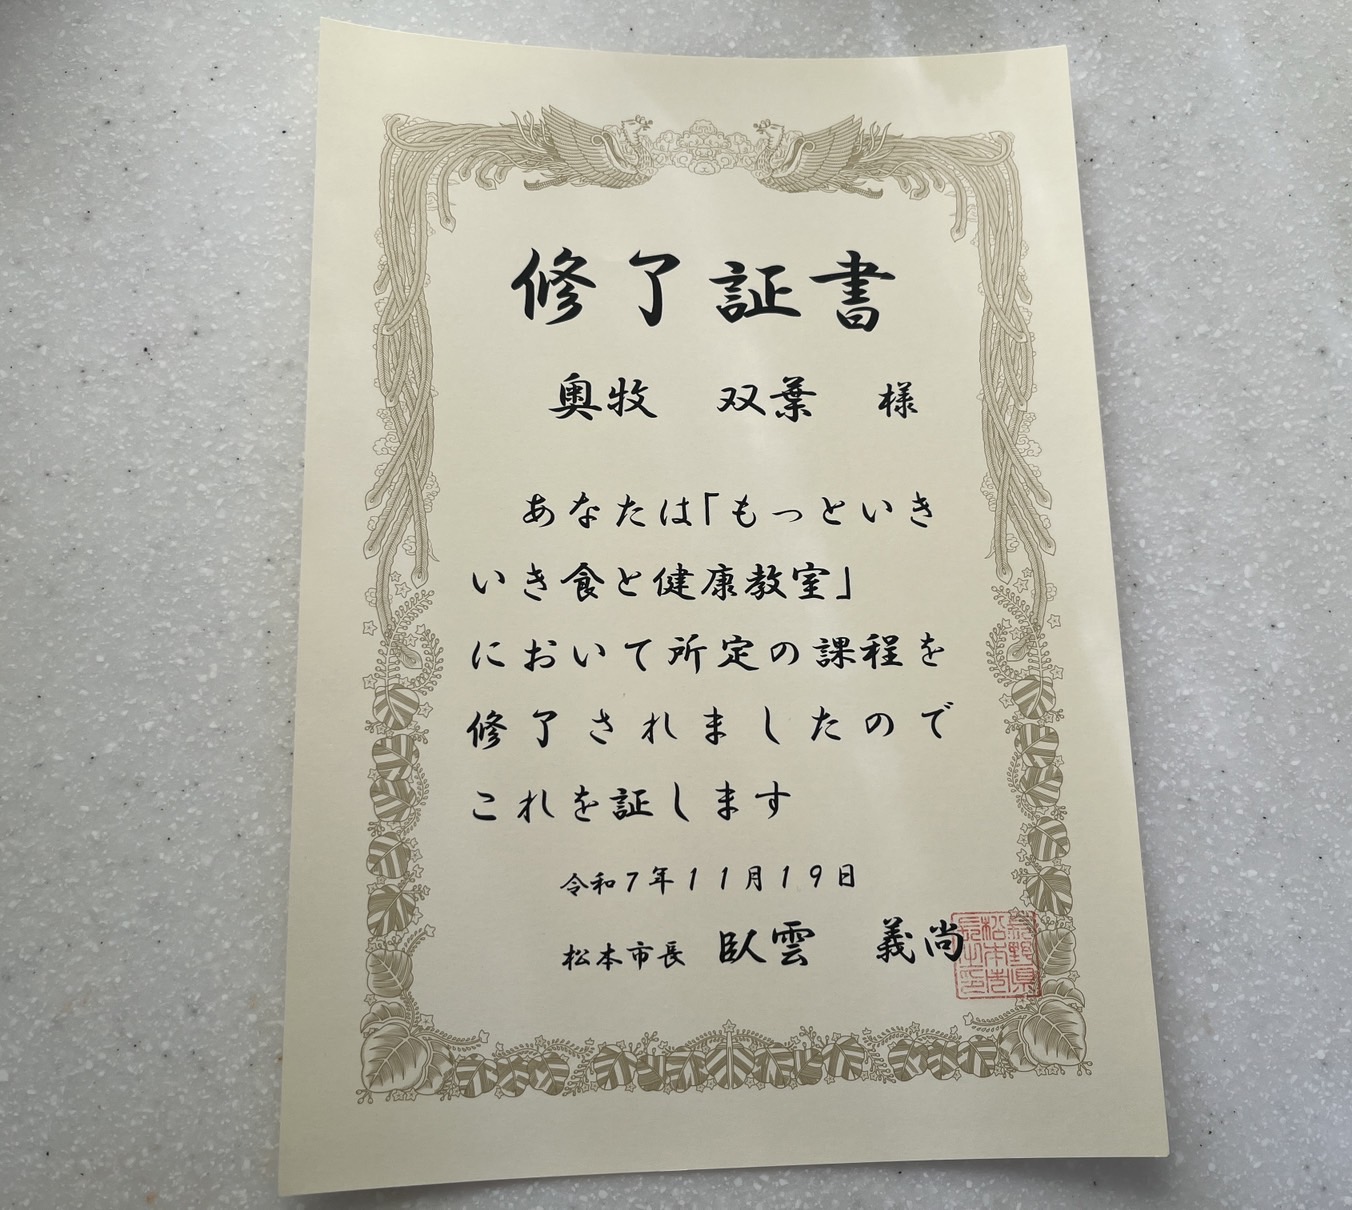 修了証書
奥牧　双葉　様
あなたは「もっといき
いき食と健康教室」
において所定の課程を
修了されましたので
これを証します
令和7年11月19日
松本市長　臥雲　義尚
長野県
松本市
長之印